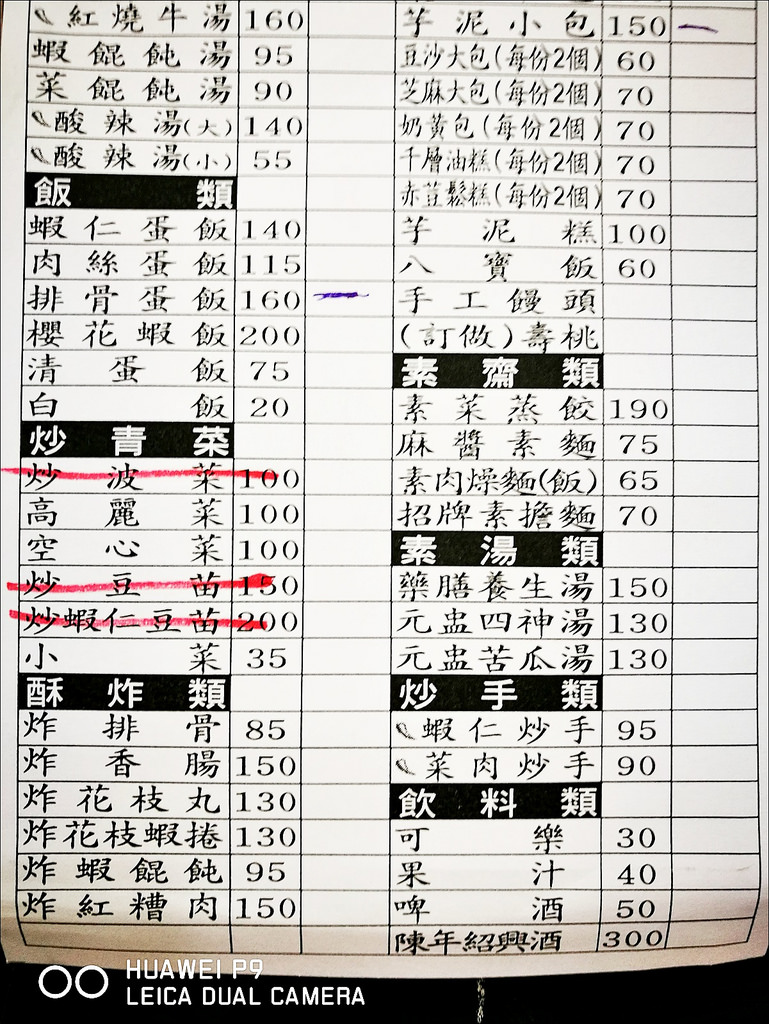 紅燒牛湯 160
蝦餛飩湯 95
菜餛飩湯 90
酸辣湯(大) 140
酸辣湯(小) 55
飯類
蝦仁蛋飯 140
肉絲蛋飯 115
排骨蛋飯 160
櫻花蝦飯 200
清蛋飯 75
白飯 20
炒青菜
炒波菜 100
高麗菜 100
空心菜 100
炒豆苗 150
炒蝦仁豆苗 200
小菜 35
酥炸類
炸排骨 85
炸香腸 150
炸花枝丸 130
炸花枝蝦捲 130
炸蝦餛飩 95
炸紅糟肉 150
芋泥小包 150
豆沙大包(每份2個) 60
芝麻大包(每份2個) 70
奶黃包(每份2個) 70
千層油糕(每份2個) 70
赤荳鬆糕(每份2個) 70
芋泥糕 100
八寶飯 60
手工饅頭
(訂做)壽桃
素齋類
素菜蒸餃 190
麻醬素麵 75
素肉燥麵(飯) 65
招牌素擔麵 70
素湯類
藥膳養生湯 150
元盅四神湯 130
元盅苦瓜湯 130
炒手類
蝦仁炒手 95
菜肉炒手 90
飲料類
可樂 30
果汁 40
啤酒 50
陳年紹興酒 300
HUAWEI P9
LEICA DUAL CAMERA